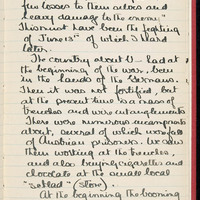 few losses to them selves and
heavy damage to the enemy."
This must have been the fighting
of June 15th of which I heard
later.
The country about U- had at
the beginning of the war, been
in the hands of the Germans.
Then it was not fortified, but
at the present time is a mass of
trenches and wire entanglements.
There were numerous encampments
about, several of which were full
of Austrian prisoners. We saw
them working at the trenches,
and also buying cigarettes and
chocolate at the small local
"sklad" (store).
At the beginning the booming